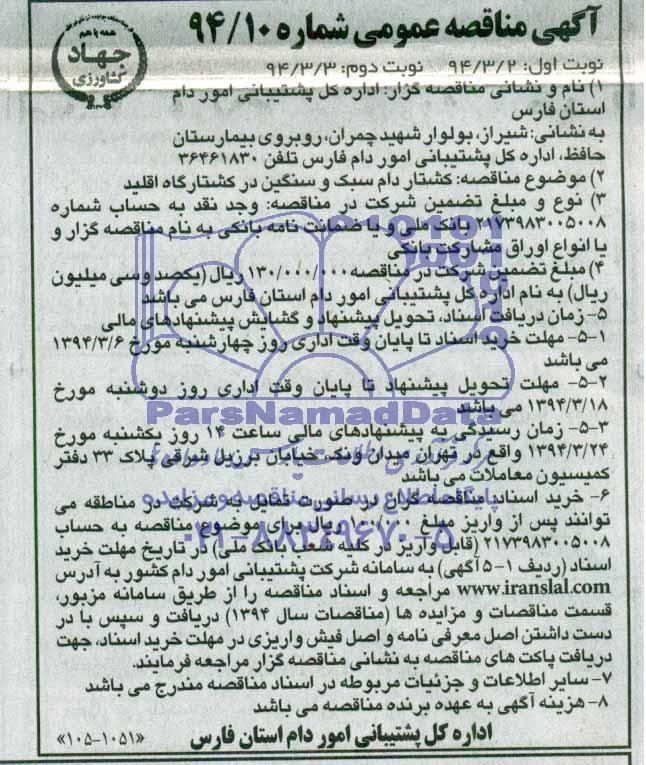 آگهی مناقصه عمومی شماره ۹۴/۱۰
همه با هم
جهاد
کشاورزی
نوبت اول: ۹۴/۳/۲ نوبت دوم: ۹۴/۳/۳
۱) نام و نشانی مناقصه گزار: اداره کل پشتیبانی امور دام
استان فارس
به نشانی: شیراز، بولوار شهید چمران، روبروی بیمارستان
حافظ، اداره کل پشتیبانی امور دام فارس تلفن ۳۶۴۶۱۸۳۰
۲) موضوع مناقصه: کشتار دام سبک و سنگین در کشتارگاه اقلید
۳) نوع و مبلغ تضمین شرکت در مناقصه: وجد نقد به حساب شماره
۲۱۷۳۹۸۳۰۰۵۰۰۸ بانک ملی و یا ضمانت نامه بانکی به نام مناقصه گزار و
یا انواع اوراق مشارکت بانکی
۴) مبلغ تضمین شرکت در مناقصه ۱۳۰/۰۰۰/۰۰۰ ریال (یکصد وسی میلیون
ریال) به نام اداره کل پشتیبانی امور دام استان فارس می باشد
۵- زمان دریافت اسناد، تحویل پیشنهاد و گشایش پیشنهادهای مالی
۵-۱- مهلت خرید اسناد تا پایان وقت اداری روز چهارشنبه مورخ ۱۳۹۴/۳/۶
می باشد
۵-۲- مهلت تحویل پیشنهاد تا پایان وقت اداری روز دوشنبه مورخ
۱۳۹۴/۳/۱۸ می باشد
ParsNamadData
۵-۳- زمان رسیدگی به پیشنهادهای مالی ساعت ۱۴ روز یکشنبه مورخ
۱۳۹۴/۳/۲۴ واقع در تهران میدان ونک، خیابان برزیل شرقی پلاک ۳۳ دفتر
کمیسیون معاملات می باشد
پایگاه اطلاع رسانی مناقصه و مزایده
۶- خرید اسناد مناقصه گران در صورت تمایل به شرکت در مناطقه می
توانند پس از واریز مبلغ ریال برای موضوع مناقصه به حساب
۰۲۱-۸۸۳۴۹۶۷۰-۵
۲۱۷۳۹۸۳۰۰۵۰۰۸ (قابل واریز در کلیه شعب بانک ملی) در تاریخ مهلت خرید
اسناد (ردیف ۱-۵ آگهی) به سامانه شرکت پشتیبانی امور دام کشور به آدرس
www.iranslal.com مراجعه و اسناد مناقصه را از طریق سامانه مزبور،
قسمت مناقصات و مزایده ها (مناقصات سال ۱۳۹۴) دریافت و سپس با در
دست داشتن اصل معرفی نامه و اصل فیش واریزی در مهلت خرید اسناد، جهت
دریافت پاکت های مناقصه به نشانی مناقصه گزار مراجعه فرمایند.
۷- سایر اطلاعات و جزئیات مربوطه در اسناد مناقصه مندرج می باشد
۸- هزینه آگهی به عهده برنده مناقصه می باشد
اداره کل پشتیبانی امور دام استان فارس
«۱۰۵-۱۰۵۱»